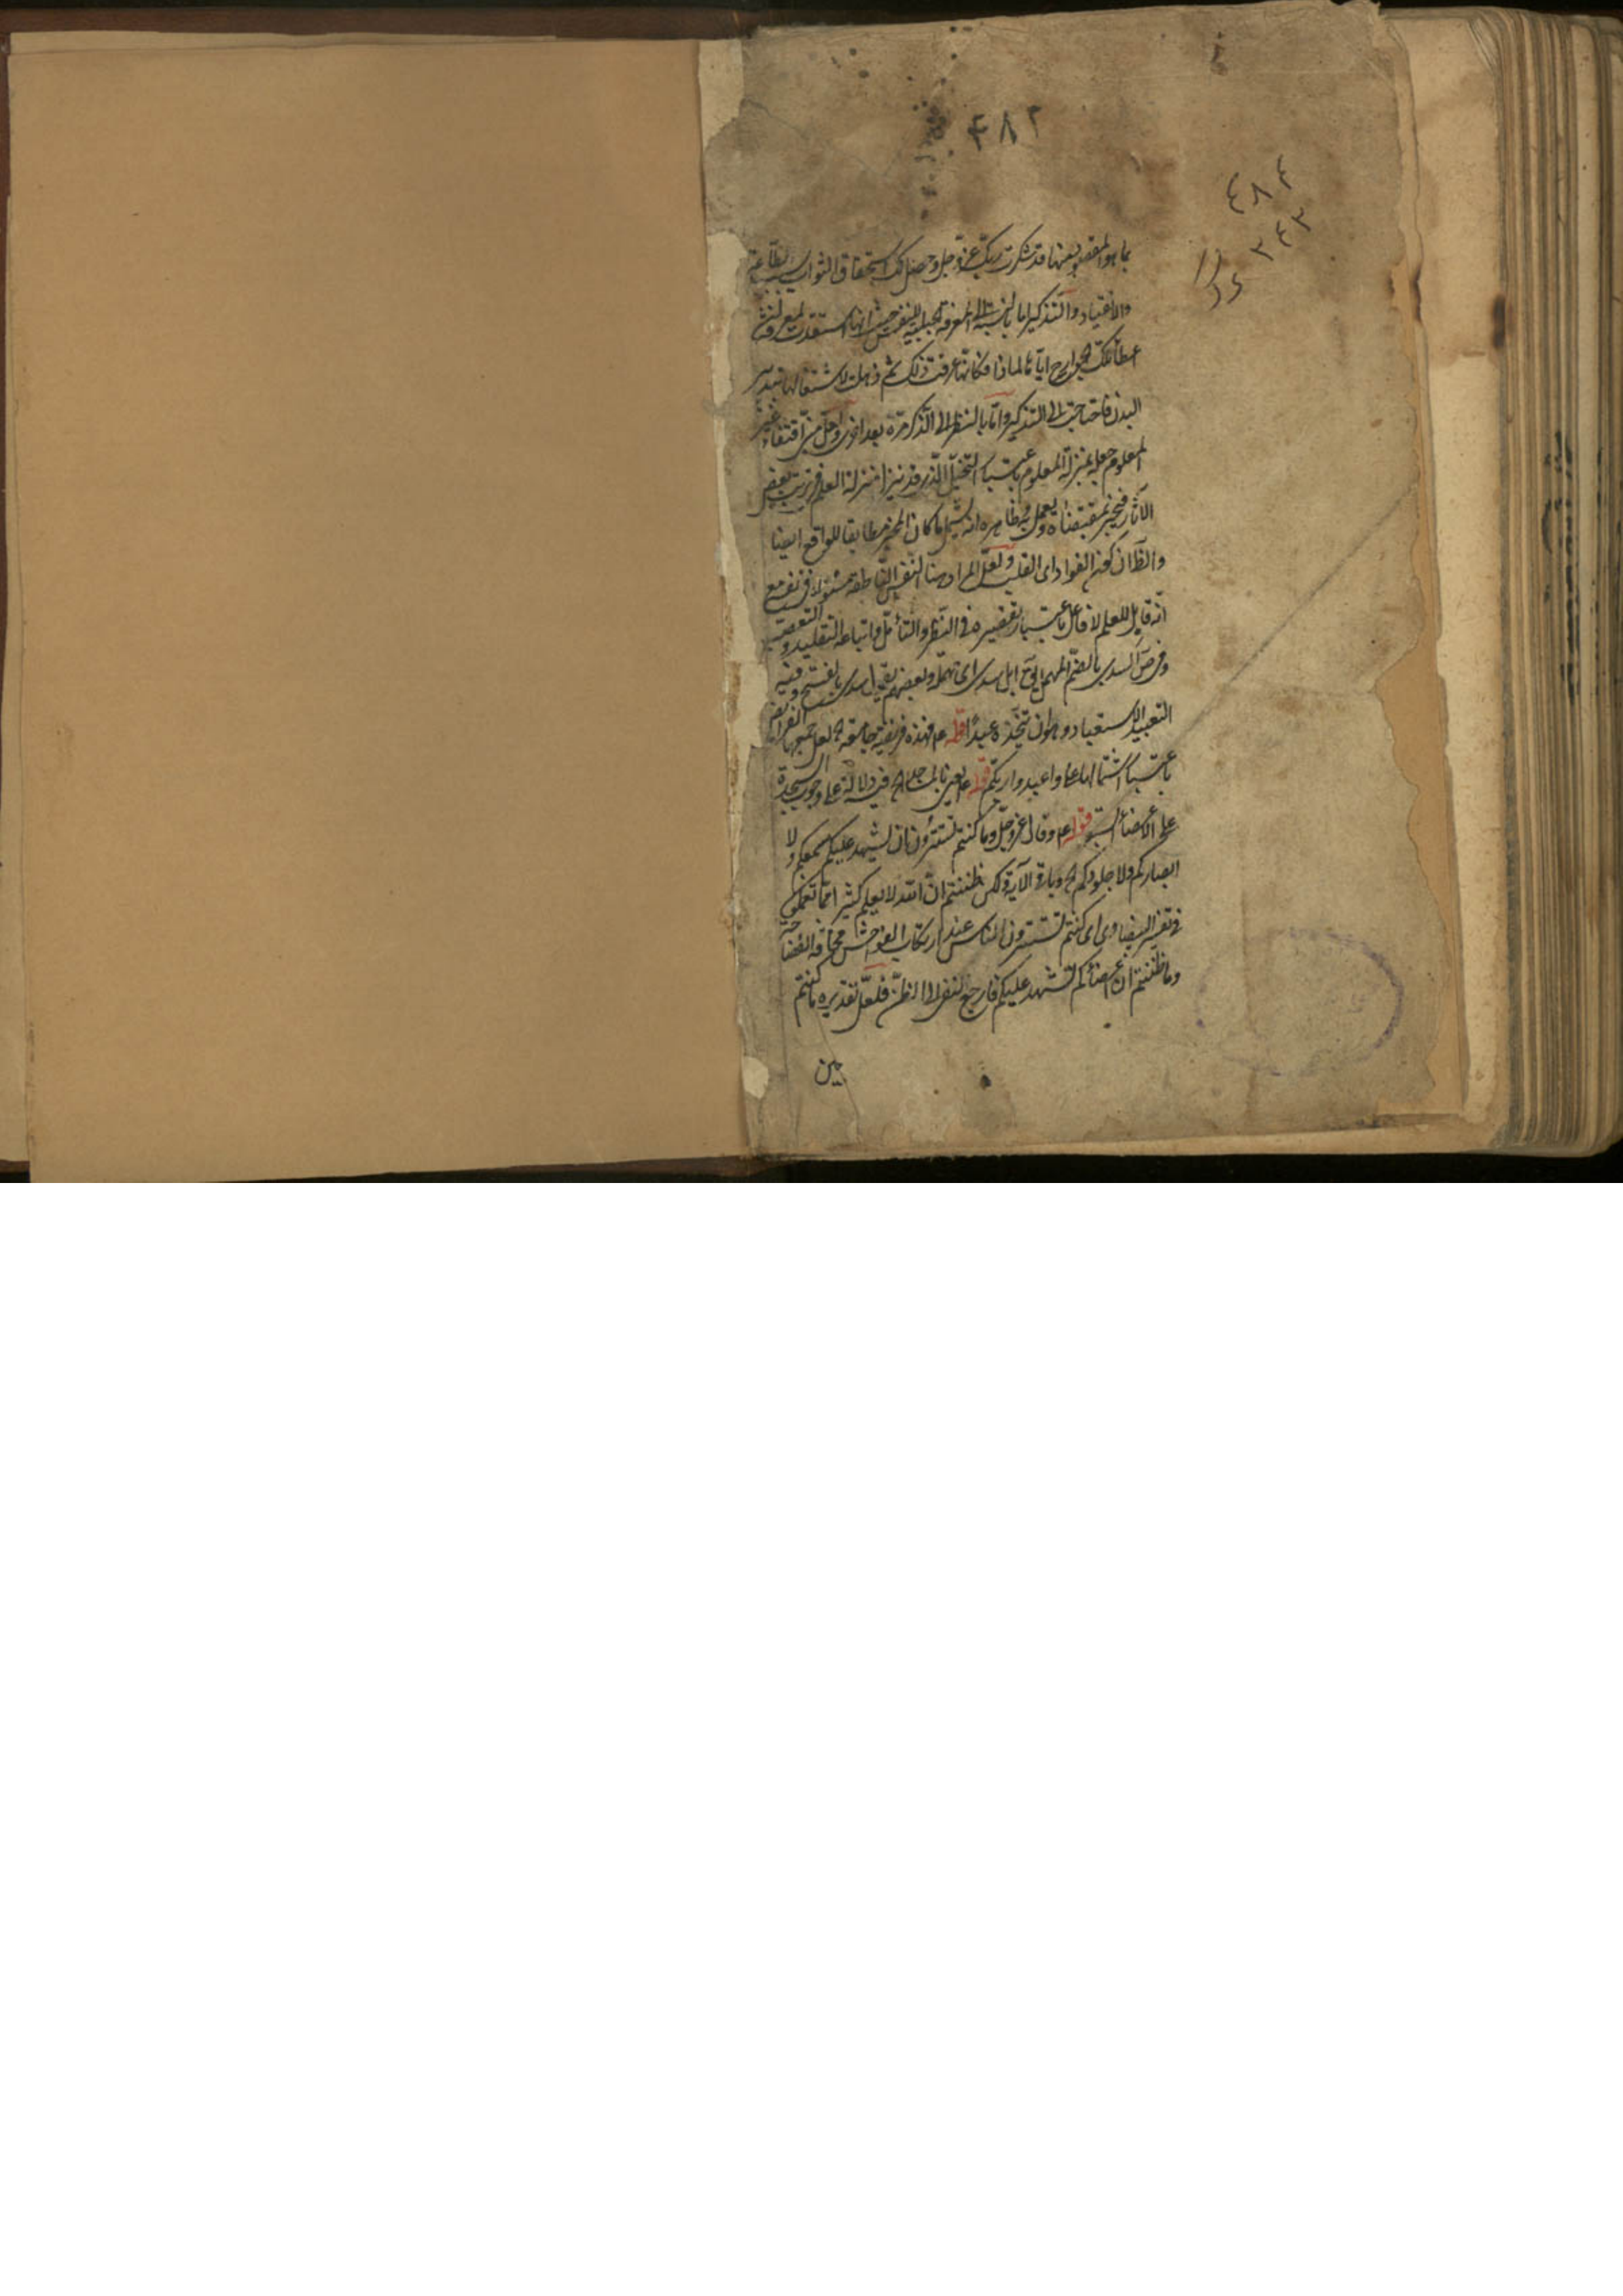 ۴۸۲
٤٨٤
٣٤٣
بما هو المقصود منها قد شكرت ربك عز وجل وحصل لك استحقاق الثواب بسبب الطاعة
والانقياد والتذكير اما بالنسبة الى المعرفة الجبلية للنفس حيث انها استعدت
اعطائك الجوارح اياتا لماذا فكانها عرفت ذلك ثم ذهلت لاشتغالها بتدبير
البدن فاحتاجت الى التذكير واما بالنظر الى التذكر مرة بعد اخرى ولعل من اقتفاء غير
المعلوم جعله بمنزلة المعلوم باعتبار التخيل منزلة العلم في ترتيب بعض
الآثار فيخبر بمقتضاه ويعمل به وظاهره انه يشمل ما كان المخبر مطابقا للواقع ايضا
والظان كهم الفواد اى القلب ولعل المراد هنا النفس الناطقة مسئولا فزيفه مع
انه قابل للعلم لا فاعل باعتبار تقصيره في النظر والتأمل واتباعه التقليد والتعصب
وفي ص السدى بالضم المهمل يق ابل سدى اى مهملة وبعضهم يقول سدى بالفتح وفيه
التعبيد الاستعباد وهو ان تتخذه عبدا قوله ع فهذه فريضة جامعة الخ لعل جمعها الفرايض
باعتبار اشتمالها على واعبدوا ربكم قوله ع يعنى بالمساجد الخ فيه دلالة على وجوب السجدة
على الاعضاء السبعة قوله ع وقال عز وجل وما كنتم تستترون ان يشهد عليكم سمعكم ولا
ابصاركم ولا جلودكم الخ وباقى الآية ولكن ظننتم ان الله لا يعلم كثيرا مما تعملون
في تفسير البيضاوى اى كنتم تستترون الناس عند ارتكاب الفواحش مخافة الفضاحة
وما ظننتم ان اعضائكم تشهد عليكم فارجع النفى الى الظن فلعل تقديره ما كنتم